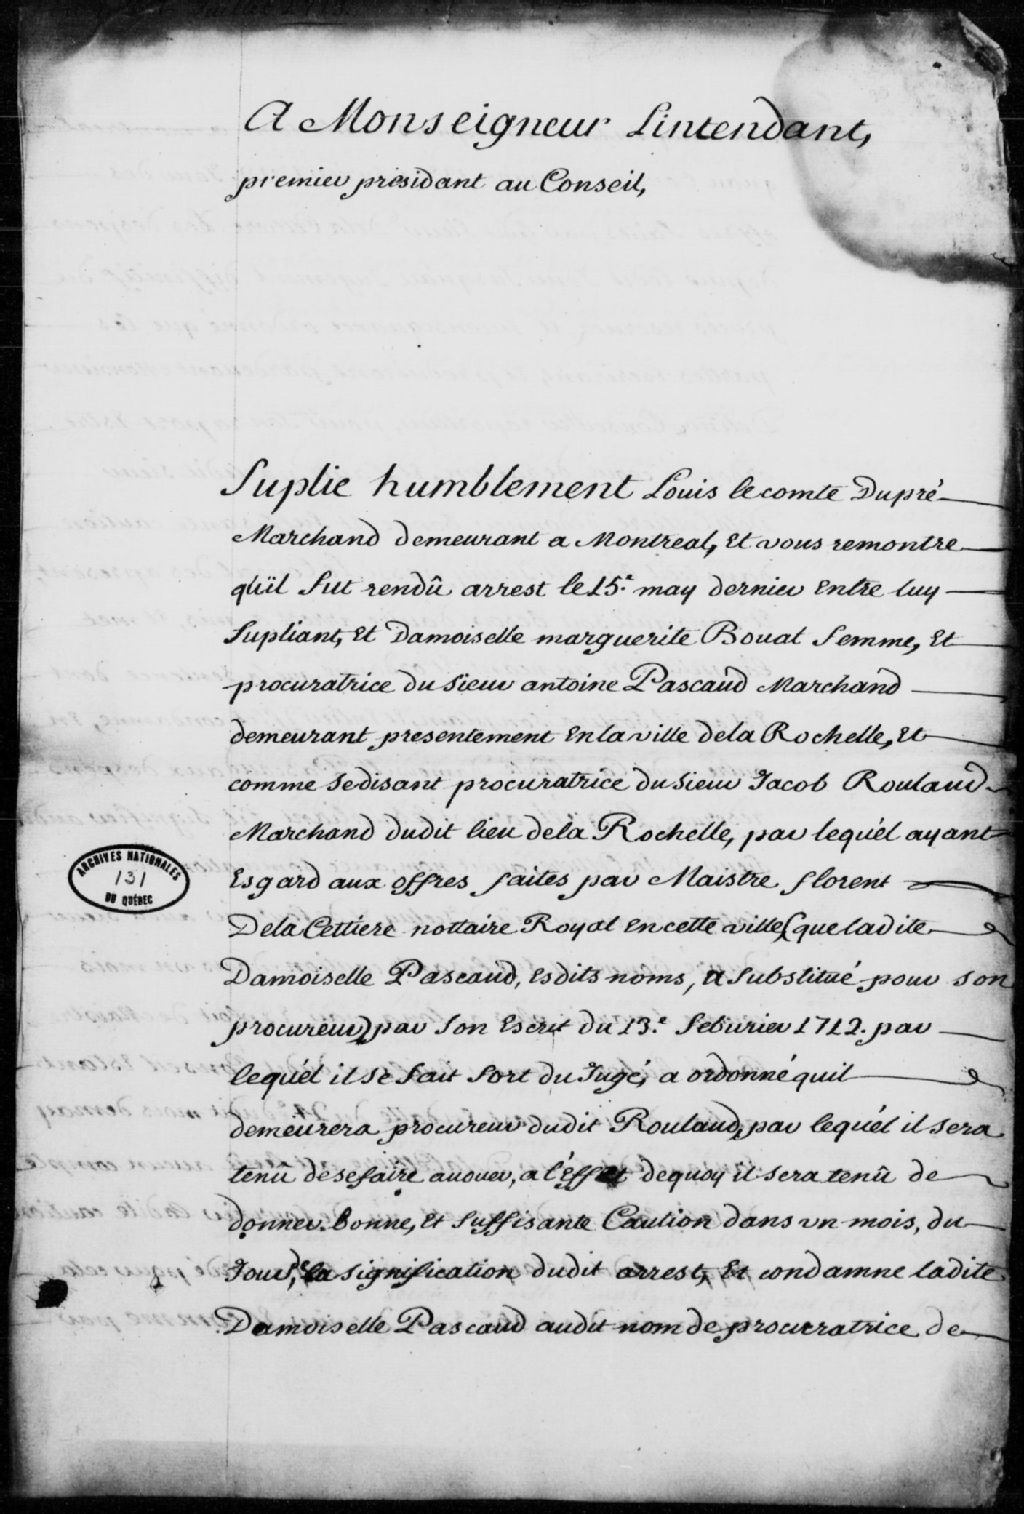 A Monseigneur Lintendant,
premier présidant au Conseil,
Suplie humblement Louis lecomte Dupré
Marchand demeurant a Montreal, Et vous remontre
qu'il fut rendû arrest le 15.e may dernier Entre luy
Supliant, Et Damoiselle marguerite Bouat femme, Et
procuratrice du Sieur antoine Pascaud Marchand
demeurant presentement En la ville de la Rochelle, Et
comme se disant procuratrice du Sieur Jacob Rouland
Marchand dudit lieu de la Rochelle, par lequel ayant
Esgard aux offres faites par Maistre florent
Dela Cettiere nottaire Royal En cette ville (que ladite
Damoiselle Pascaud, esdits noms, a substitué pour son
procureur) par son Escrit du 13.e feburier 1712. par
lequel il se fait fort du Jugé, a ordonné quil
demeurera procureur dudit Rouland, par lequel il sera
tenu de se faire auouer, a l'Effet dequoy il sera tenû de
donner bonne, Et suffisante Caution dans un mois, du
Jour, de la signification dudit arrest, Et condamne ladite
Damoiselle Pascaud audit nom de procuratrice de
ARCHIVES NATIONALES
131
DU QUÉBEC